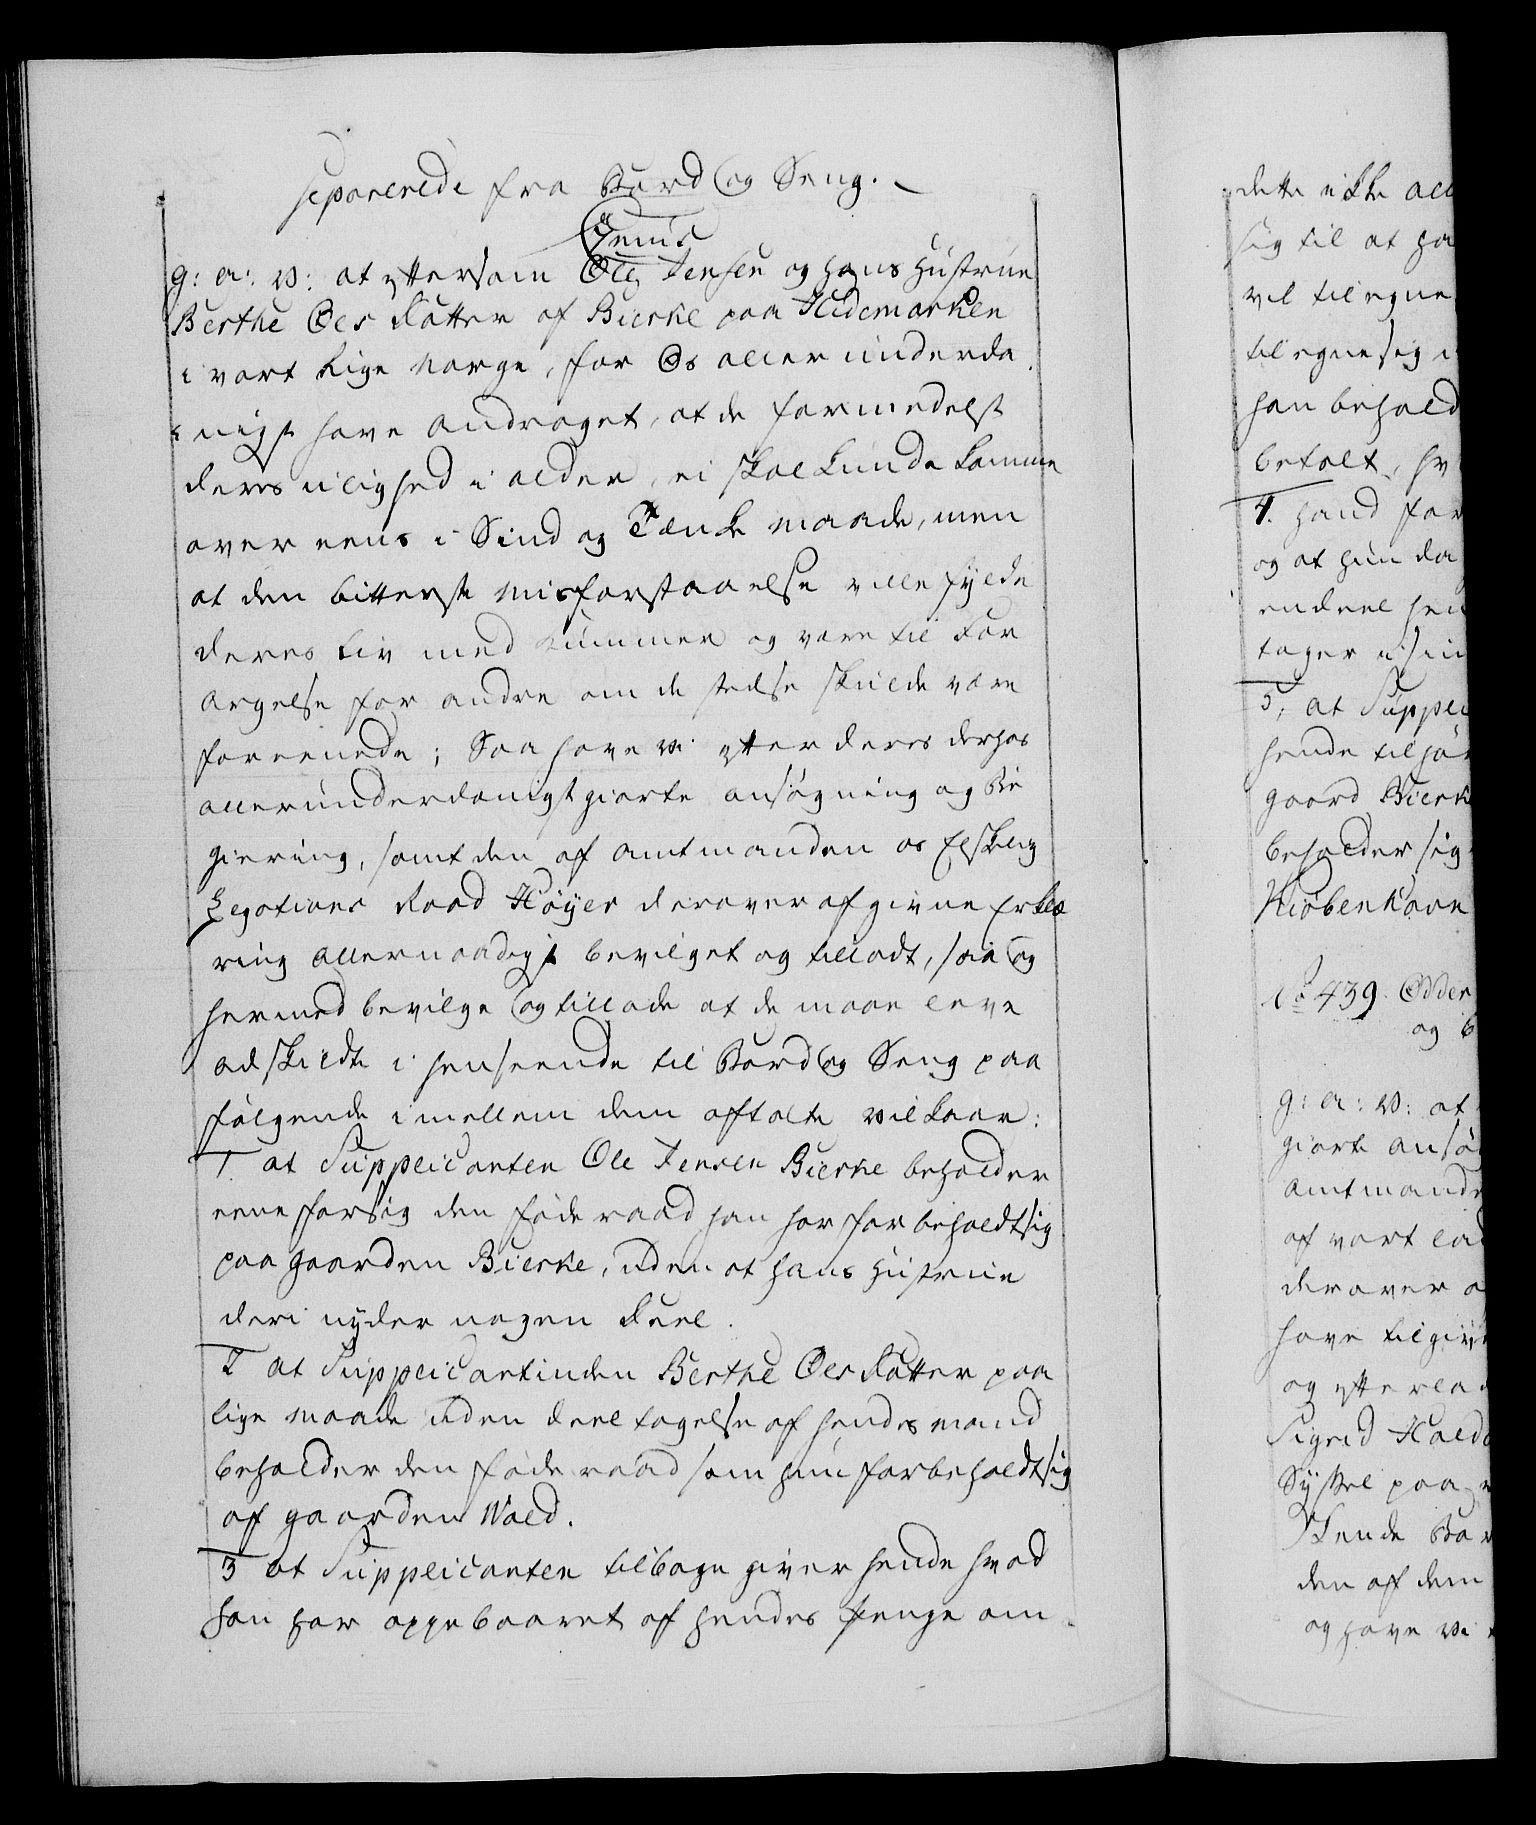 separerede fra Bord og Seng.
g: a: v: at efftersom Ole Jensen og hans Hustrue
Berthe Oles Datter af Bierke paa Hedemarken
i vort Rige Norge, for Os allerunderda
nigst have andraget, at de formedelst
deres ulighed i alder, ei skal kunde komme
over eens i Sind og Tænke maade, men
at den bitterste misforstaaelse ville fylde
deres Liv med kummer og være til For
argelse for andre om de stedse skulde være
foreenede; Saa have vi effter deres derhos
allerunderdanigst giorte ansøgning og Be
giering, samt den af amtmanden os Elskelig
Legations Raad Høyer derover afgivne Erklæ
ring allernaadigst bevilget og tilladt, saa og
hermed bevilge og tillade at de maae leve
adskildte i henseende til Bord og Seng paa
følgende imellem dem aftalte vilkaar:
1 at Supplicanten Ole Jensen Bierke beholder
eene for sig den føderaad han har forbeholdt sig
paa gaarden Bierke, uden at hans Hustrue
deri nyder nogen Deel.
2 at Supplicantinden Berthe Oles Datter paa
lige maade uden deeltagelse af hendes mand
beholder den føderaad som hun forbeholdt sig
af gaarden Wold.
3 at Supplicanten tilbage giver hende hvad
han har oppebaaret af hendes penge om
dette ikke all
sig til at ha
vil tilegne
tilegne sig
han behold
betalt, hv
4. hand for
og at hun da
endeel hen
tager i sin
5, at Suppli
hende tilhør
gaard Bierk
beholder sig
Kiøbenhavn
No 439. Odder
og b
g: a: v: at
giorte ansøg
amtmande
af vort lad
derover a
have tilgiv
og effterlad
Sigrid Hald
Syssel paa
kende Bar
den af dem
og have vi